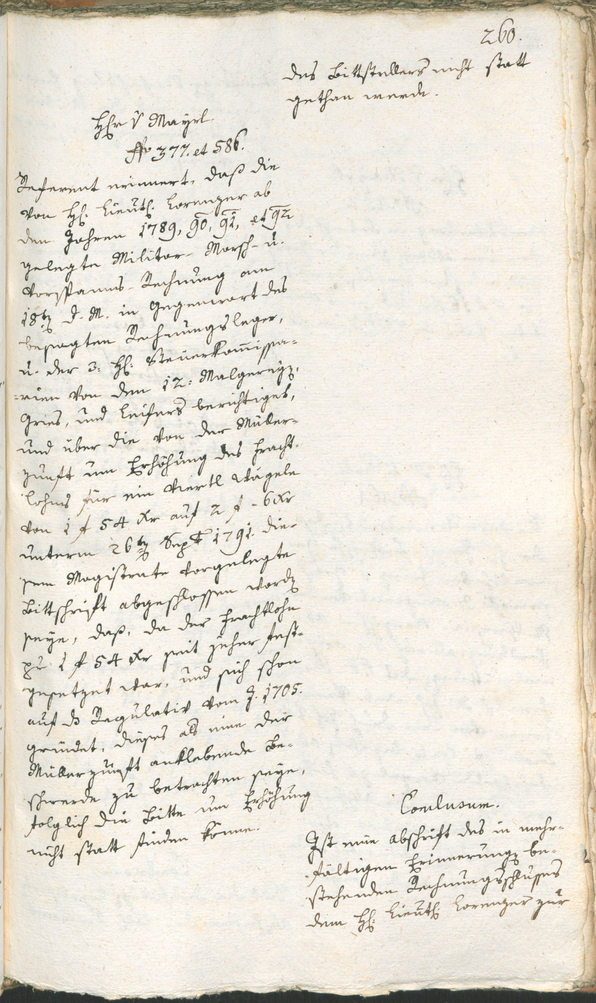 260.
des Bittstellers nicht statt
gethan werde.
Hr v Mayrl
No 377. et 586.
Referent erinnert, daß die
von H: Lieut: Lorenzer ab
den Jahren 1789, 90, 91, et 92
gelegte Militar- Marsch- u.
Vorspanns-Rechnung am
18ten d. M. in Gegenwart des
besagten Rechnungsleger,
u. der 3. H: Steuerkommissa-
rien von dem 12: Malgerey,
Gries, und Leifers berichtiget,
und über die von der Müller-
zunft um Erhöhung des Fracht-
lohns für ein Viertl Wägele
von 1 f 54 Xr auf 2 f - 6 Xr
unterm 26ten Sept 1791. die-
sem Magistrate vorgelegte
Bittschrift abgeschlossen worden
seye, daß, da der Frachtlohn
zu 1 f 54 Xr seit jeher fest-
gesetzet war, und sich schon
auf das Regulativ vom J. 1705.
gründet, dieses als eine der
Müllerzunft anklebende Be-
schwerde zu betrachten seye,
folglich die Bitte um Erhöhung
nicht statt finden könne.
Conclusum.
Ist eine Abschrift des in mehr-
fältigen Erinnerung be-
stehenden Rechnungsschlusses
dem H: Lieut: Lorenzer zur